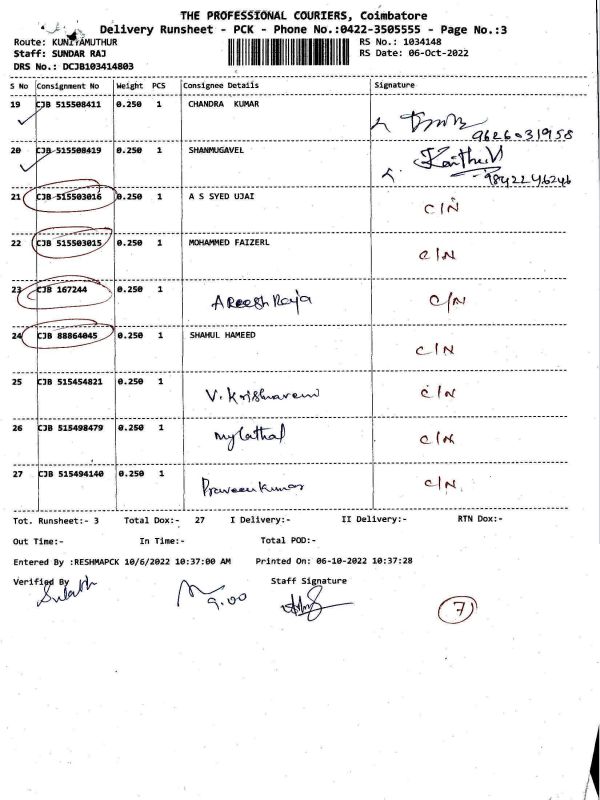 THE PROFESSIONAL COURIERS, Coimbatore
Delivery Runsheet - PCK - Phone No.:0422-3505555 - Page No.:3
Route: KUNIYAMUTHUR RS No.: 1034148
Staff: SUNDAR RAJ RS Date: 06-Oct-2022
DRS No.: DCJB103414803
S No Consignment No Weight PCS Consignee Details Signature
19 CJB 515508411 0.250 1 CHANDRA KUMAR
9626031958
20 CJB 515508419 0.250 1 SHANMUGAVEL
9842246246
21 CJB 515503016 0.250 1 A S SYED UJAI C/N
22 CJB 515503015 0.250 1 MOHAMMED FAIZERL C/N
23 CJB 167244 0.250 1 AReesh Raja C/N
24 CJB 88864045 0.250 1 SHAHUL HAMEED C/N
25 CJB 515454821 0.250 1 V. Krishnaveni C/N
26 CJB 515498479 0.250 1 Mylathal C/N
27 CJB 515494140 0.250 1 Praveenkumar C/N
Tot. Runsheet:- 3 Total Dox:- 27 I Delivery:- II Delivery:- RTN Dox:-
Out Time:- In Time:- Total POD:-
Entered By :RESHMAPCK 10/6/2022 10:37:00 AM Printed On: 06-10-2022 10:37:28
Verified By Staff Signature
9.00
7